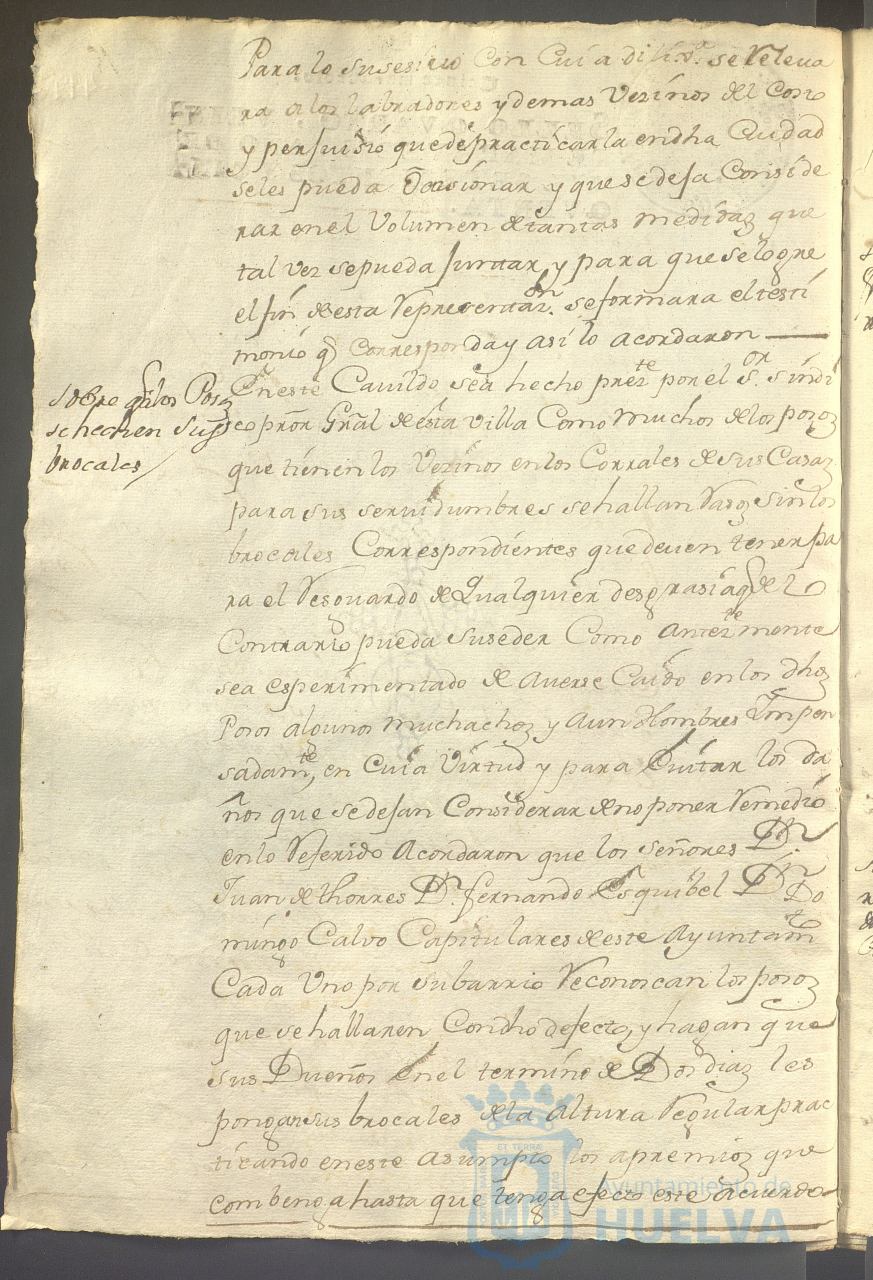 Para lo susesiuo Con Cuia dilixª. se Releua
ra a los labradores y demas Vezinos del Costo
y perjuisio que de practicarla en dha Ciudad
se les pueda Ocasionar y que se deja Conside
rar en el Volumen de tantas medidas que
tal vez se pueda juntar, y para que se logre
el fin de esta Representaon. se formara el testi
monio q Corresponda y asi lo acordaron
sobre q los Posos
se hechen sus
brocales
En este Cavildo sea hecho preste por el Sor. sindi
co pror Gral de esta Villa Como muchos de los posos
que tienen los Vezinos en los Corrales de sus Casas
para sus servidumbres se hallan Rasos sin los
brocales Correspondientes que deuen tener pa
ra el Resguardo de qualquier desgrasia q de lo
Contrario pueda suseder Como anterte mente
sea esperimentado de averse Caido en los dhos
Posos algunos muchachos y aun Hombres Ympen
sadamte, en Cuia Virtud y para Euitar los da
ños que se dejan Considerar de no poner Remedio
en lo Referido Acordaron que los señores Dn.
Juan de thorres Dn. fernando Esquibel Dn Do
mingo Calvo Capitulares de este Ayuntamto
Cada Uno por su barrio Reconoscan los posos
que se hallaren Con dho defecto, y hagan que
sus Dueños en el termino de Dos dias les
pongan sus brocales de la Altura Regular prac
ticando en este asumpto los apremios que
combenga hasta que tenga efecto este Acuerdo
Ayuntamiento de
HUELVA